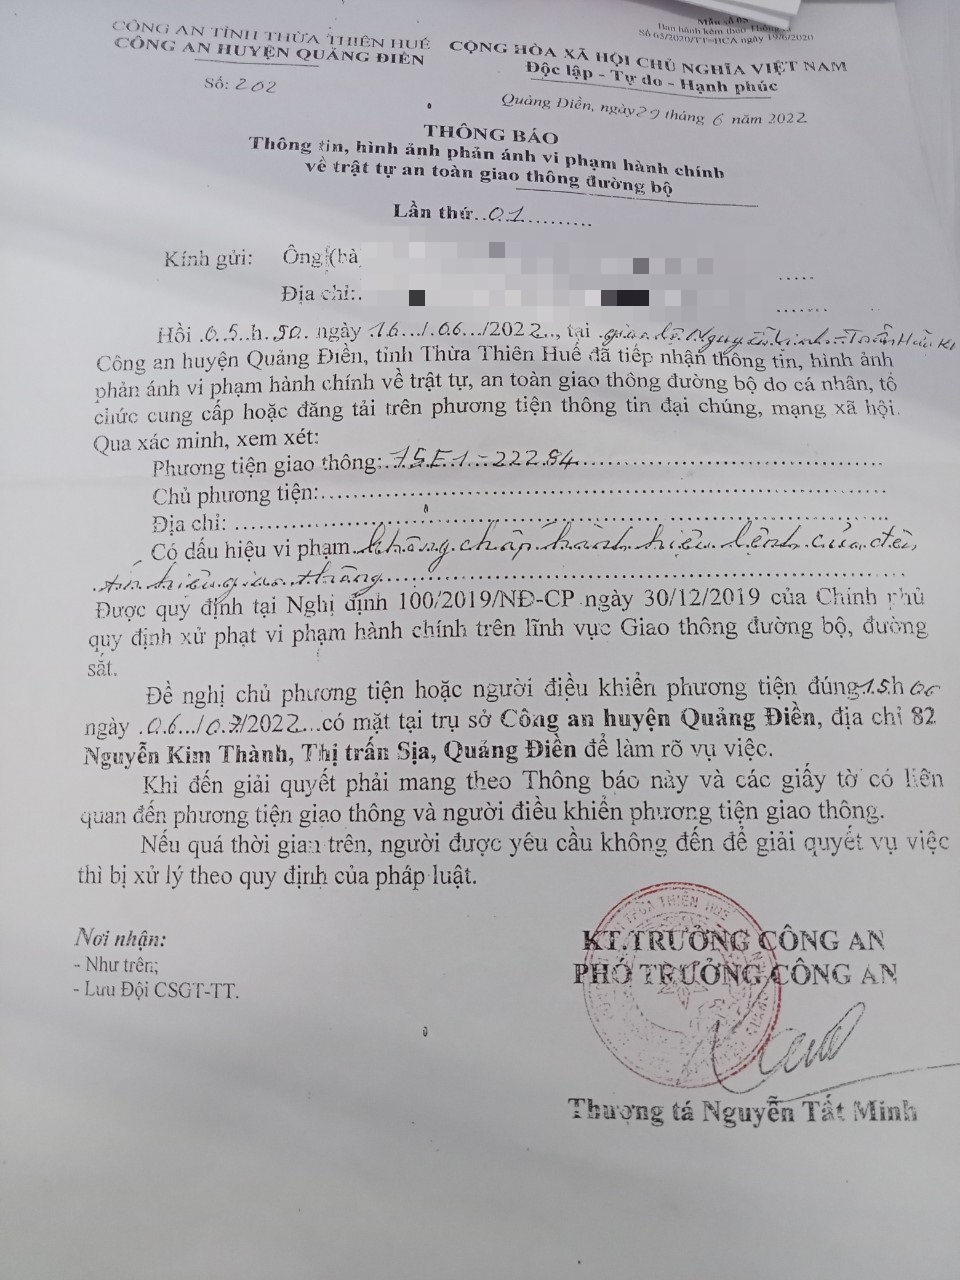 Mẫu số 05
Ban hành kèm theo Thông tư
Số 65/2020/TT-BCA ngày 19/6/2020
CÔNG AN TỈNH THỪA THIÊN HUẾ
CÔNG AN HUYỆN QUẢNG ĐIỀN
CỘNG HÒA XÃ HỘI CHỦ NGHĨA VIỆT NAM
Độc lập - Tự do - Hạnh phúc
Số: 202
Quảng Điền, ngày 29 tháng 6 năm 2022
THÔNG BÁO
Thông tin, hình ảnh phản ánh vi phạm hành chính
về trật tự an toàn giao thông đường bộ
Lần thứ..01...........
Kính gửi: Ông (bà
Địa chỉ:.
Hồi .05.h.50. ngày .16.../.06.../2022.., tại giao lộ Nguyễn Vịnh - Trần Hữu
Công an huyện Quảng Điền, tỉnh Thừa Thiên Huế đã tiếp nhận thông tin, hình ảnh
phản ánh vi phạm hành chính về trật tự, an toàn giao thông đường bộ do cá nhân, tổ
chức cung cấp hoặc đăng tải trên phương tiện thông tin đại chúng, mạng xã hội.
Qua xác minh, xem xét:
Phương tiện giao thông: 75E1 - 222.84
Chủ phương tiện:
Địa chỉ:
Có dấu hiệu vi phạm không chấp hành hiệu lệnh của đèn
tín hiệu giao thông
Được quy định tại Nghị định 100/2019/NĐ-CP ngày 30/12/2019 của Chính phủ
quy định xử phạt vi phạm hành chính trên lĩnh vực Giao thông đường bộ, đường
sắt.
Đề nghị chủ phương tiện hoặc người điều khiển phương tiện đúng 15.h 00
ngày .06.../07/2022...có mặt tại trụ sở Công an huyện Quảng Điền, địa chỉ 82
Nguyễn Kim Thành, Thị trấn Sịa, Quảng Điền để làm rõ vụ việc.
Khi đến giải quyết phải mang theo Thông báo này và các giấy tờ có liên
quan đến phương tiện giao thông và người điều khiển phương tiện giao thông.
Nếu quá thời gian trên, người được yêu cầu không đến để giải quyết vụ việc
thì bị xử lý theo quy định của pháp luật.
Nơi nhận:
- Như trên;
- Lưu Đội CSGT-TT.
KT.TRƯỞNG CÔNG AN
PHÓ TRƯỞNG CÔNG AN
THỪA THIÊN HUẾ
Thượng tá Nguyễn Tất Minh